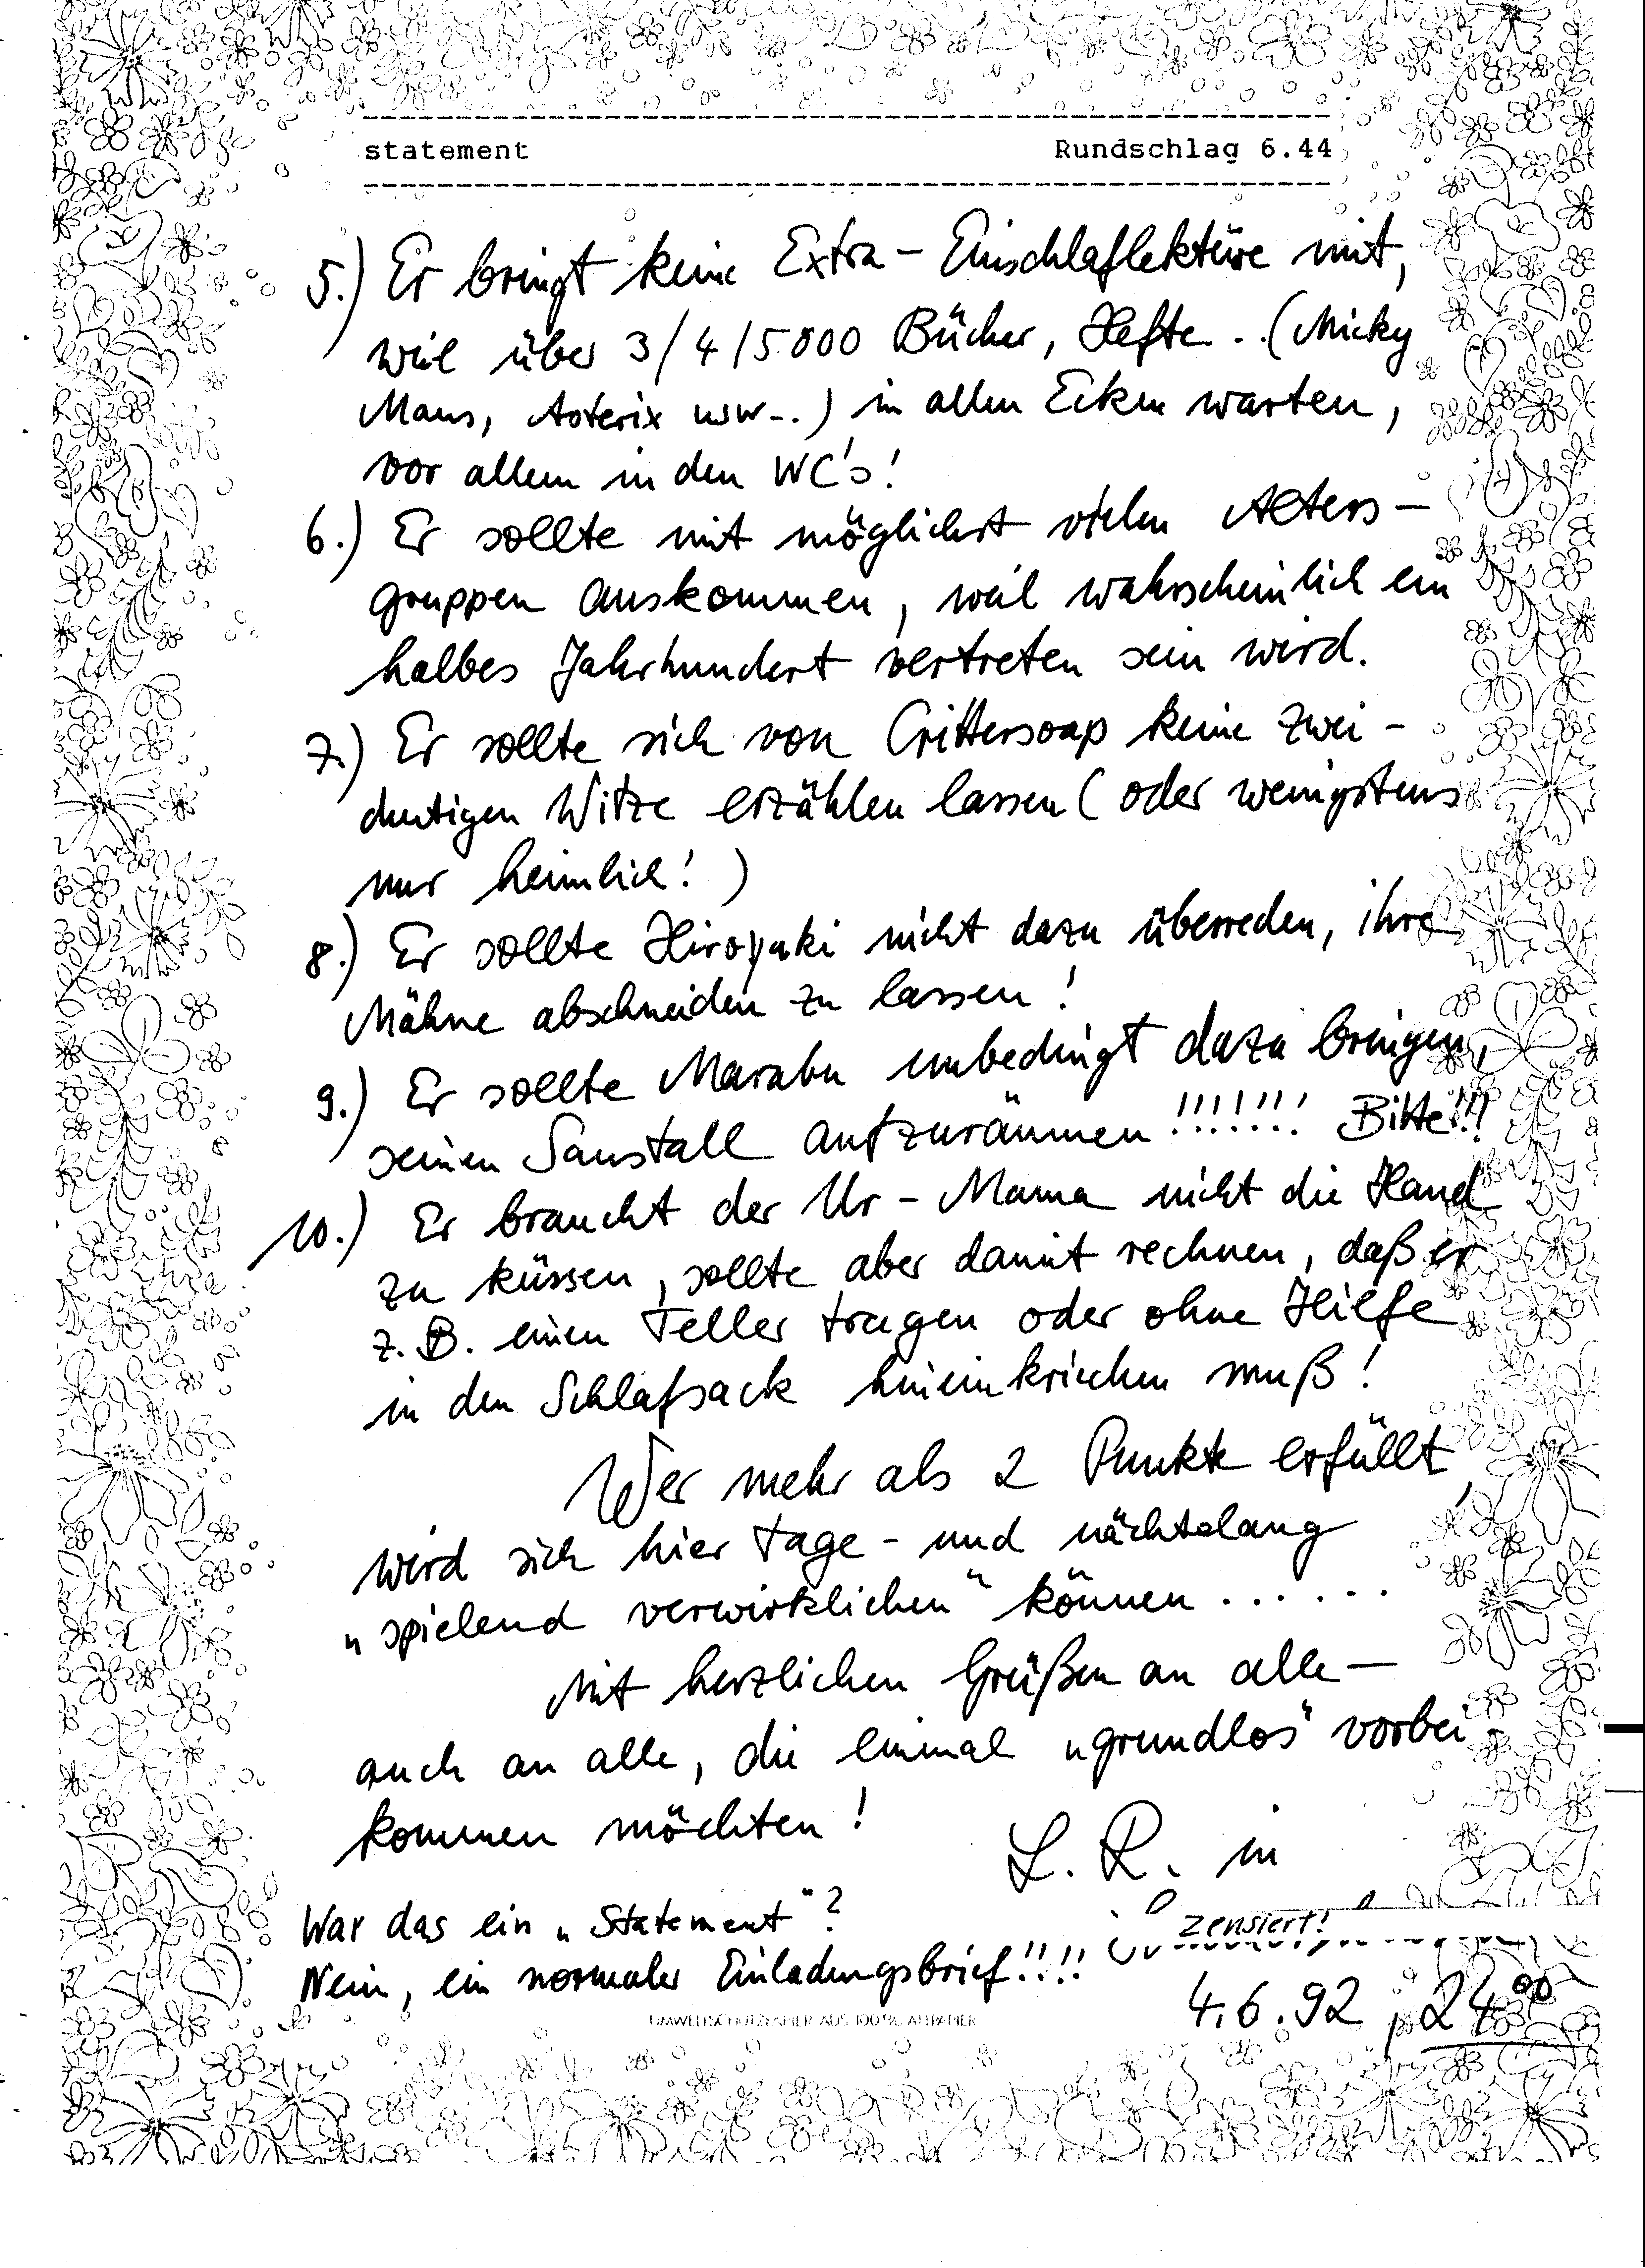 statement Rundschlag 6.44
5.) Er bringt keine Extra-Einschlaflektüre mit,
weil über 3/4/5.000 Bücher, Hefte.. (Micky
Maus, Asterix usw...) in allen Ecken warten,
vor allem in den WC's!
6.) Er sollte mit möglichst vielen Alters-
gruppen auskommen, weil wahrscheinlich ein
halbes Jahrhundert vertreten sein wird.
7.) Er sollte sich von Crittersoap keine zwei-
deutigen Witze erzählen lassen (oder wenigstens
nur heimlich!)
8.) Er sollte Hiroyuki nicht dazu überreden, ihre
Mähne abschneiden zu lassen!
9.) Er sollte Marabu unbedingt dazu bringen,
seinen Saustall aufzuräumen!!!!!!! Bitte!!!
10.) Er braucht der Ur-Mama nicht die Hand
zu küssen, sollte aber damit rechnen, daß er
z.B. einen Teller tragen oder ohne Hilfe
in den Schlafsack hineinkriechen muß!
Wer mehr als 2 Punkte erfüllt,
wird sich hier tage- und nächtelang
„spielend verwirklichen" können......
Mit herzlichen Grüßen an alle –
auch an alle, die einmal „grundlos" vorbei
kommen möchten!
L. R. in
zensiert!
War das ein „Statement"?
Nein, ein normaler Einladungsbrief!!!!
4.6.92, 24⁰⁰
UMWELTSCHUTZPAPIER AUS 100% ALTPAPIER